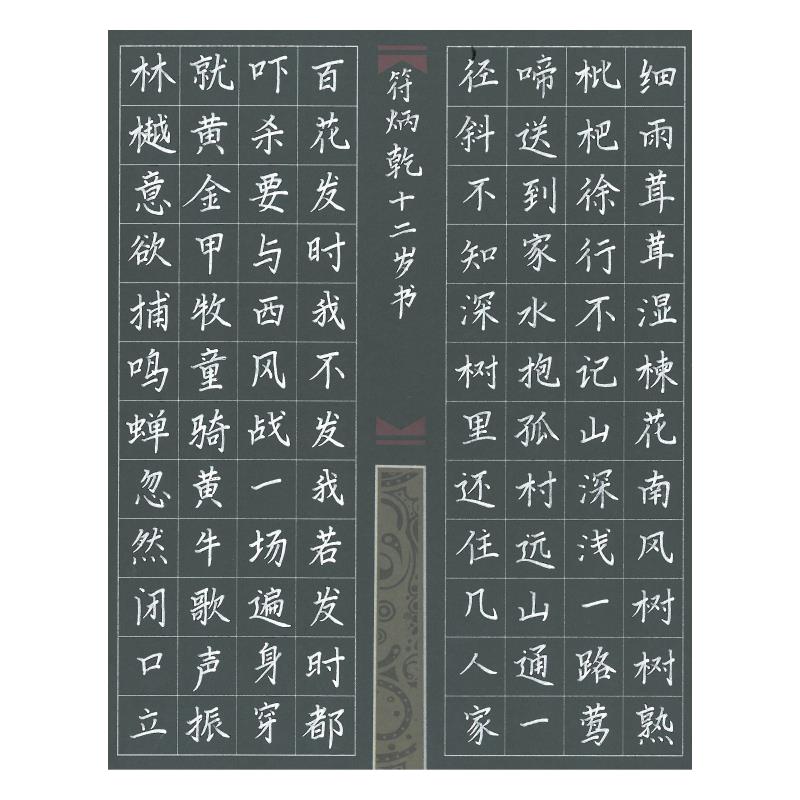 细雨茸茸湿楝花南风树树熟
枇杷徐行不记山深浅一路莺
啼送到家水抱孤村远山通一
径斜不知深树里还住几人家
符炳乾十二岁书
百花发时我不发我若发时都
吓杀要与西风战一场遍身穿
就黄金甲牧童骑黄牛歌声振
林樾意欲捕鸣蝉忽然闭口立